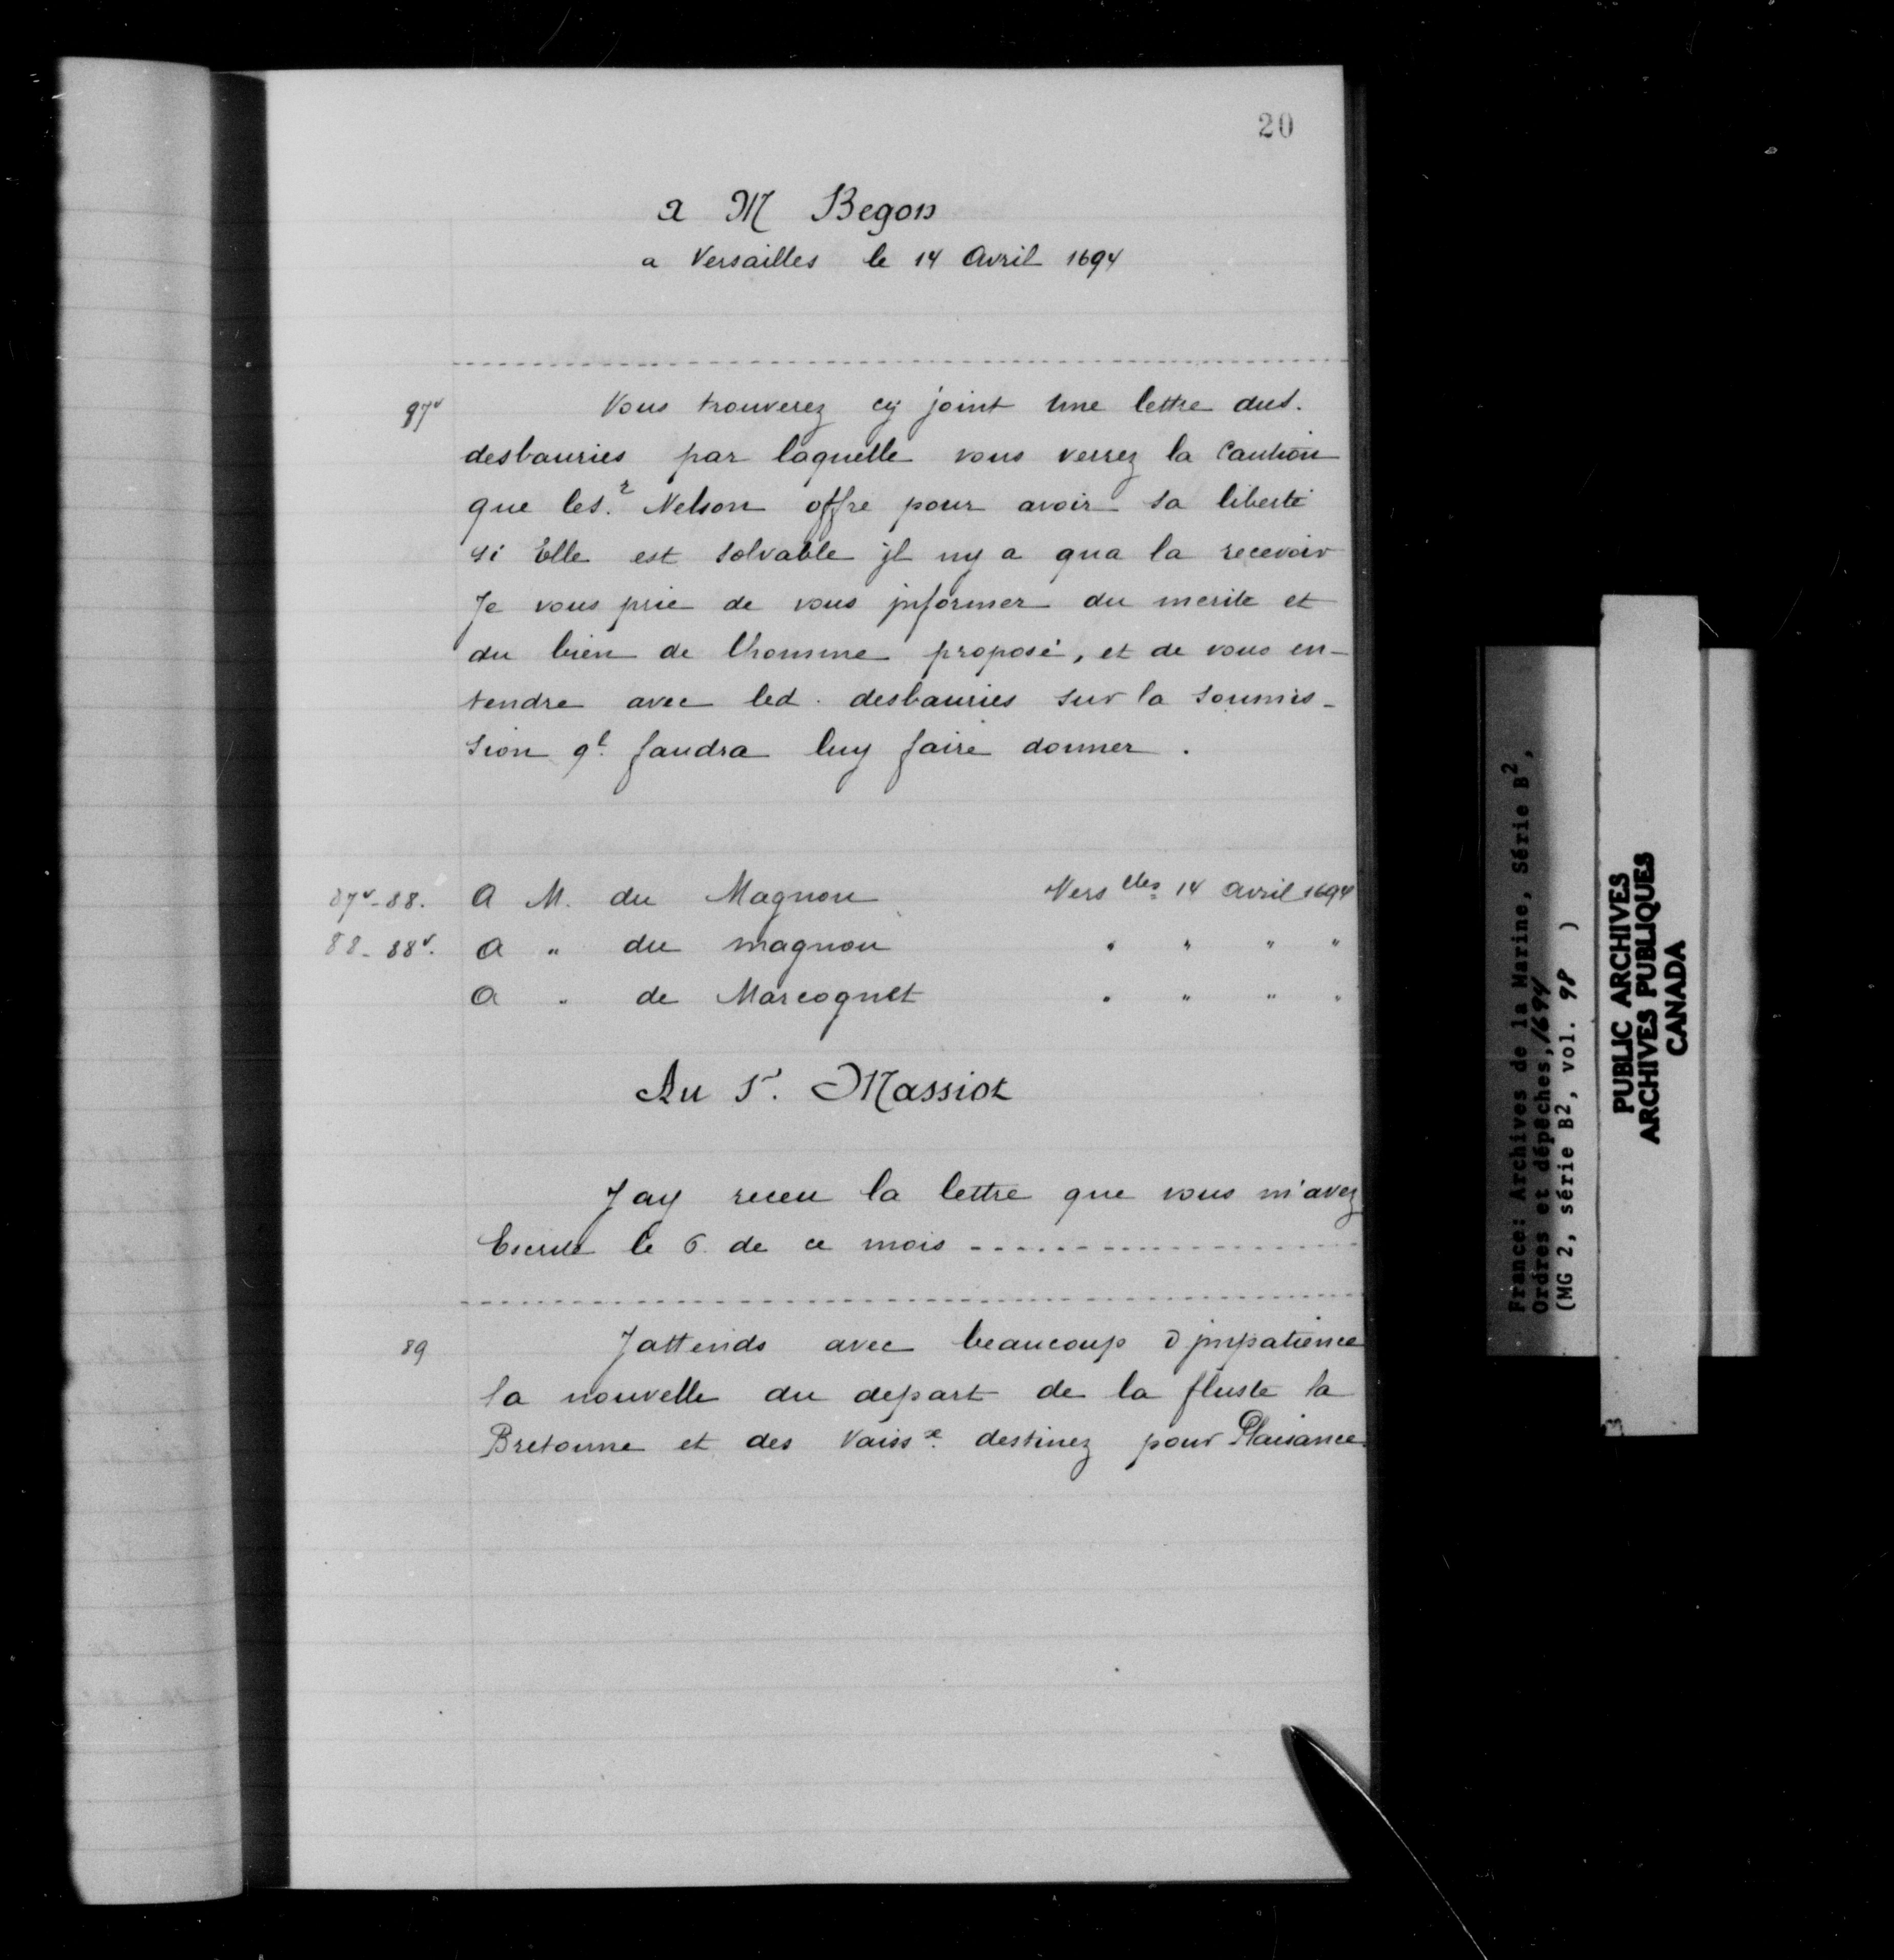 20
a M Begon
a Versailles le 14 Avril 1694
87v
Vous trouverez cy joint Une lettre dus.
desbauries par laquelle vous verrez la Caution
que les.r Nelson offre pour avoir sa liberté
si Elle est solvable jl ny a qua la recevoir
Je vous prie de vous jnformer du merite et
du bien de lhomme proposé, et de vous en-
tendre avec led. desbauries sur la soumis-
sion ql. faudra luy faire donner.
87v-88. A M. du Magnou Vers lles 14 avril 1694
88-88v. A " du magnou " " " "
A " de Marcognet " " " "
Au Sr. Massiot
Jay receu la lettre que vous m'avez
Escrite le 6 de ce mois
89
Jattends avec beaucoup d jmpatience
la nouvelle du depart de la fluste la
Bretonne et des Vaissx. destinez pour Plaisance.
France: Archives de la Marine, Série B2,
Ordres et dépêches, 1694
(MG 2, série B2, vol. 98 )
PUBLIC ARCHIVES
ARCHIVES PUBLIQUES
CANADA